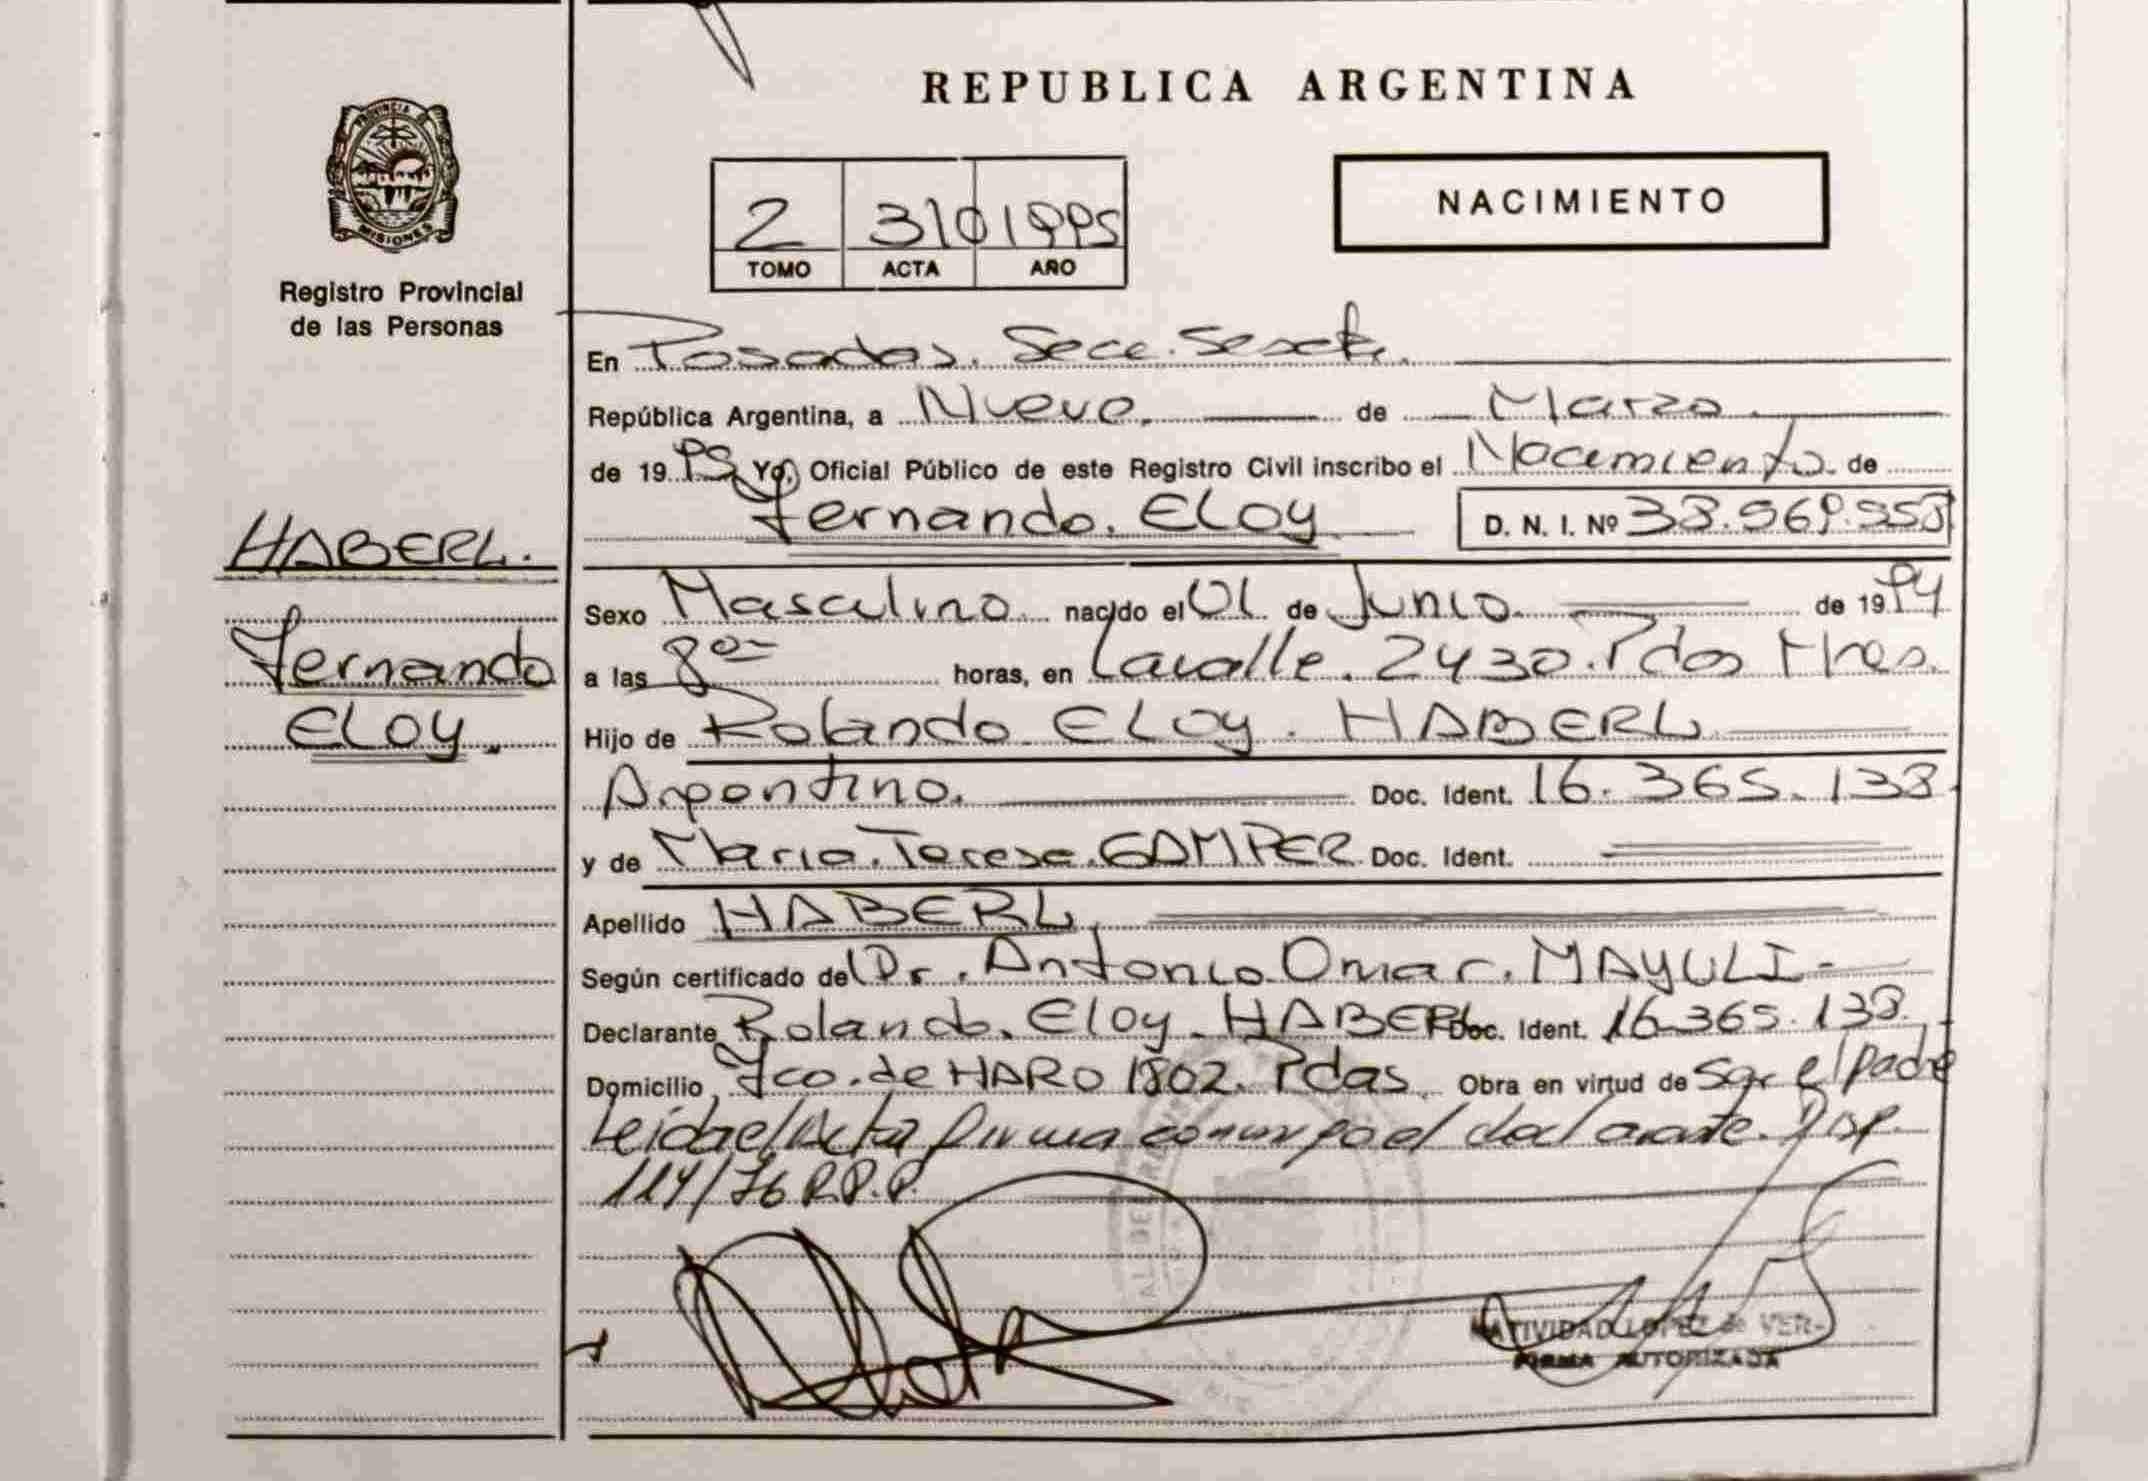 REPUBLICA ARGENTINA
PROVINCIA DE
MISIONES
Registro Provincial
de las Personas
2 310 1995
TOMO ACTA AÑO
NACIMIENTO
En Posadas. Secc. Sexta.
República Argentina, a Nueve. de Marzo.
de 1995 Yo, Oficial Público de este Registro Civil inscribo el Nacimiento. de
Fernando. ELOY D. N. I. Nº
HABERL.
Fernando
ELOY.
Sexo Masculino. nacido el 01 de Junio. de 1994
a las 8 00 horas, en Lavalle. 2430. Pdas Mnes.
Hijo de Rolando ELOY. HABERL
Argentino. Doc. Ident. 16.365.138.
y de Maria. Teresa. GAMPER Doc. Ident.
Apellido HABERL.
Según certificado del Dr. Antonio Omar. MAYULI-
Declarante Rolando. Eloy. HABERL Doc. Ident. 16.365.138.
Domicilio Fco. de HARO 1802. Pdas. Obra en virtud de Ser el padre
Leida el Acta firma conmigo el declarante. Disp.
114/76 R.P.P.
NATIVIDAD LOPEZ de VER-
FIRMA AUTORIZADA